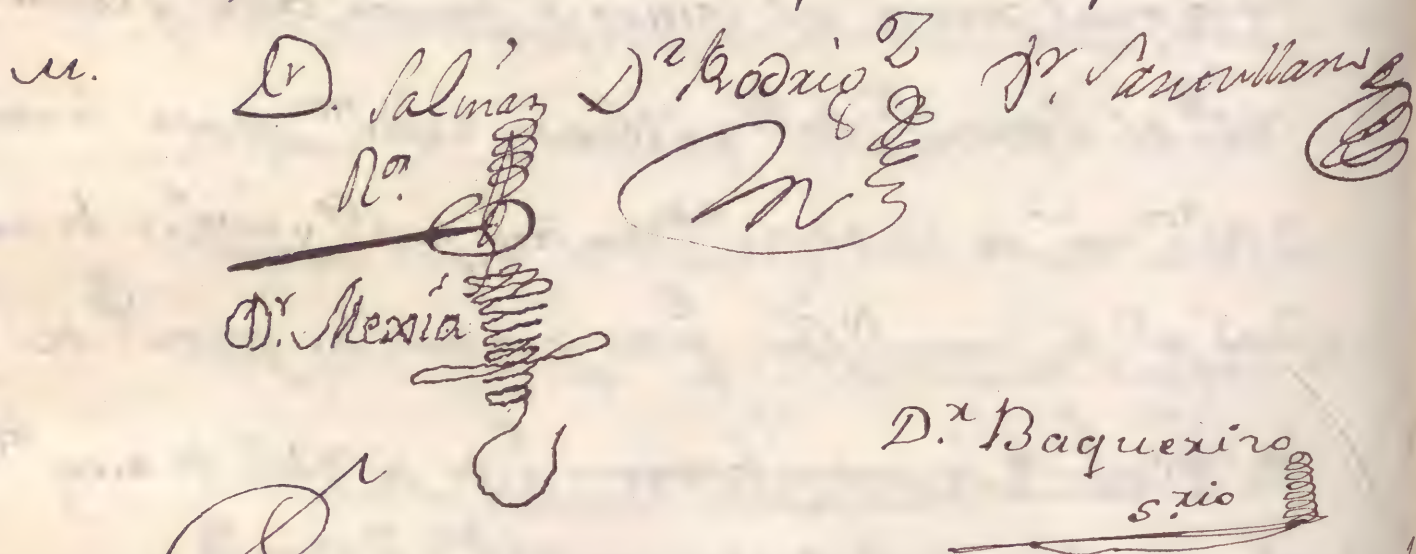 D.r Salinas D.r Rodrig.z D.r Santullano
R.or
D.r Mexía
D.r Baquerizo
s.rio